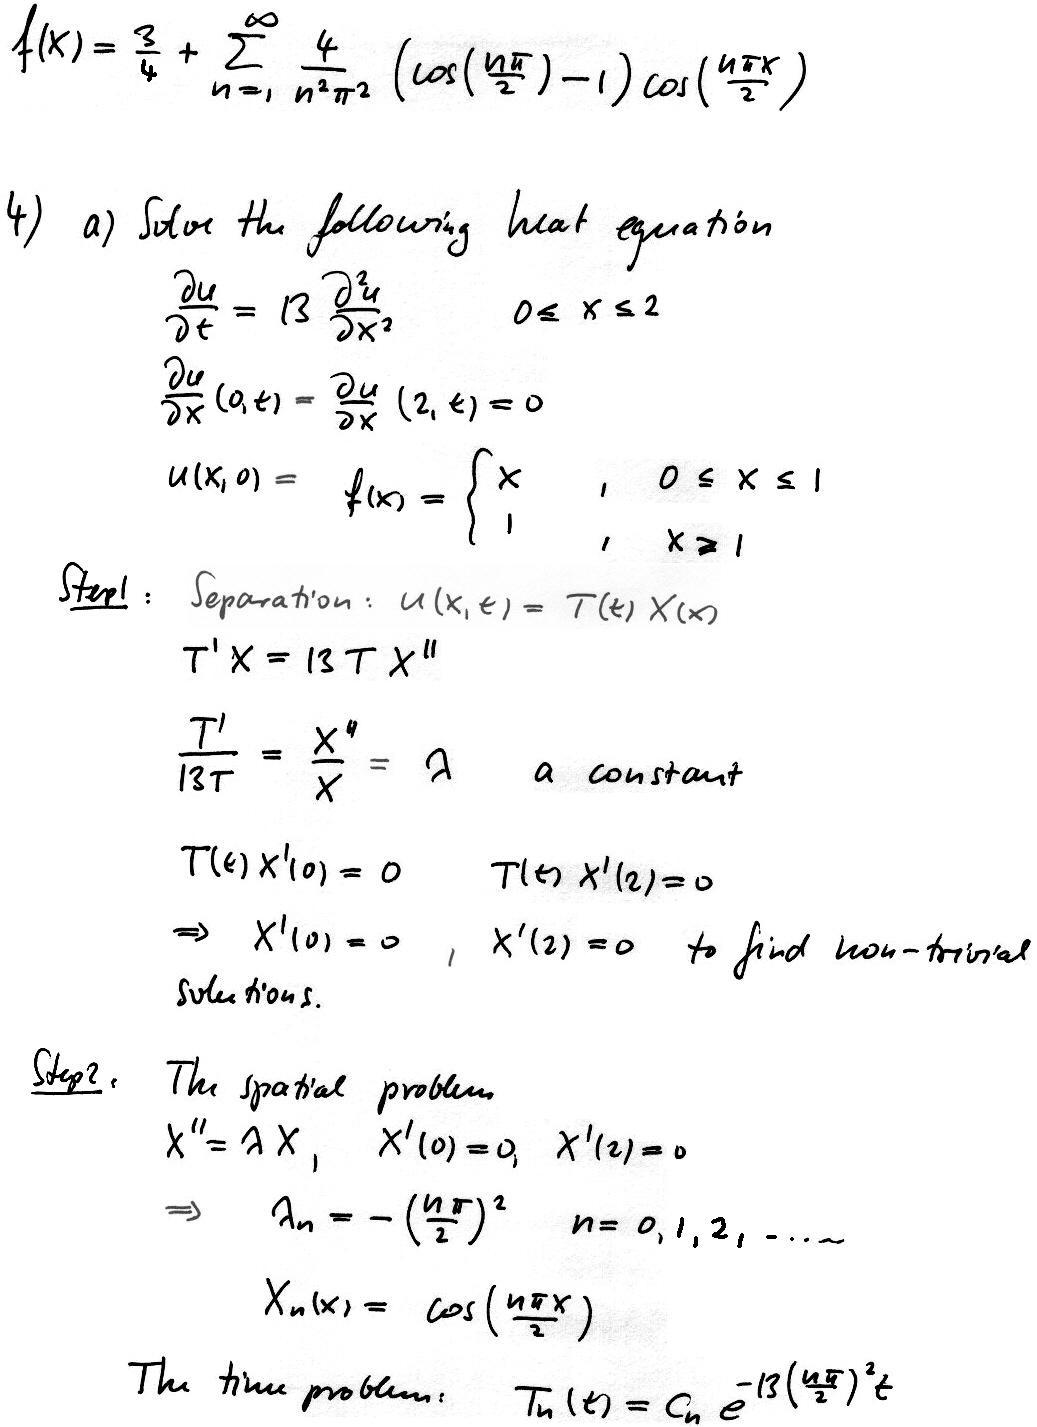 f(x) = 3/4 + ∑_{n=1}^{∞} 4/(n²π²) (cos(nπ/2) − 1) cos(nπx/2)
4) a) Solve the following heat equation
∂u/∂t = 13 ∂²u/∂x² 0 ≤ x ≤ 2
∂u/∂x (0,t) = ∂u/∂x (2, t) = 0
u(x,0) = f(x) = { x , 0 ≤ x ≤ 1
1 , x ≥ 1
Step1: Separation: u(x,t) = T(t) X(x)
T'X = 13 T X''
T'/13T = X''/X = λ a constant
T(t) X'(0) = 0 T(t) X'(2) = 0
⇒ X'(0) = 0 , X'(2) = 0 to find non-trivial
solutions.
Step2. The spatial problem
X'' = λX, X'(0) = 0, X'(2) = 0
⇒ λn = −(nπ/2)² n = 0, 1, 2, .....
Xn(x) = cos(nπx/2)
The time problem: Tn(t) = Cn e^{−13(nπ/2)²t}